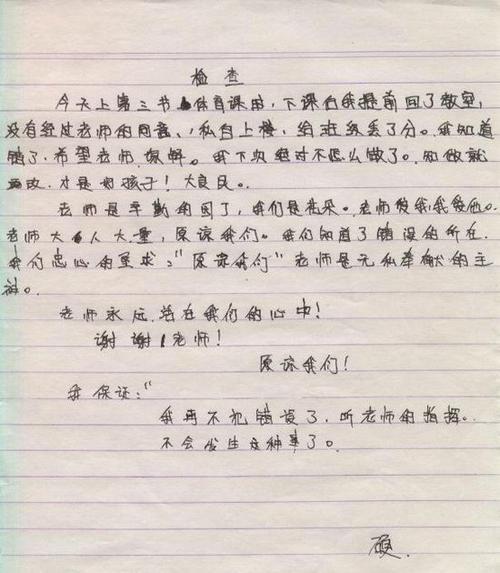 检查
今天上第三节体育课时,下课后我提前回了教室,
没有经过老师的同意、私自上楼,给班级丢了分。我知道
错了,希望老师谅解。我下次绝对不怎么做了。知做就
改,才是好孩子!大良民。
老师是辛勤的园丁,我们是花朵。老师爱我,我爱他。
老师大人大量,原谅我们。我们知道了错误的所在。
我们忠心的望求:“原谅我们”老师是无私奉献的主
神。
老师永远活在我们的心中!
谢谢!老师!
原谅我们!
我保证:“
我再不犯错误了,听老师的指挥。
不会发生这种事了。